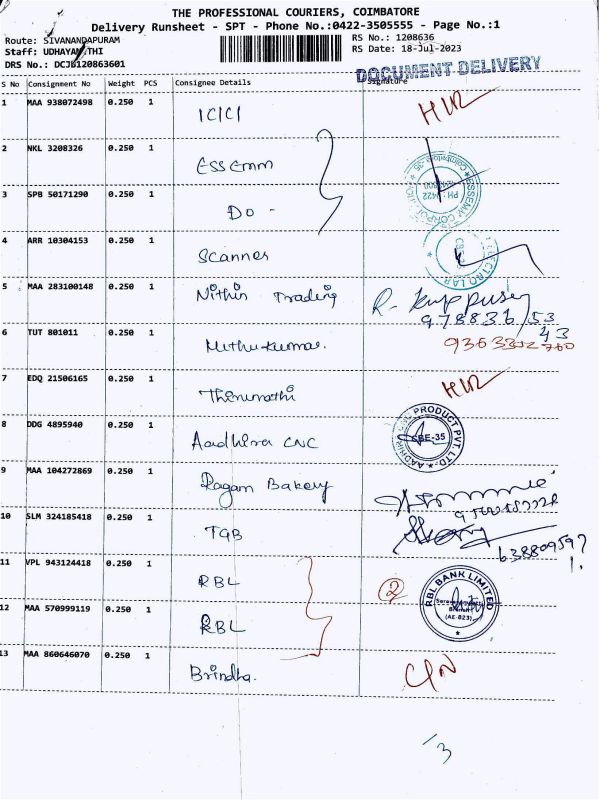 THE PROFESSIONAL COURIERS, COIMBATORE
Delivery Runsheet - SPT - Phone No.:0422-3505555 - Page No.:1
Route: SIVANANDAPURAM RS No.: 1208636
Staff: UDHAYAMATHI RS Date: 18-Jul-2023
DRS No.: DCJB120863601
DOCUMENT DELIVERY
S No Consignment No Weight PCS Consignee Details Signature
1 MAA 938072498 0.250 1 ICICI
2 NKL 3208326 0.250 1 ESSEMM
3 SPB 50171290 0.250 1 DO -
4 ARR 10304153 0.250 1 Scanner
5 MAA 283100148 0.250 1 Nithin Trading
6 TUT 801011 0.250 1 Muthukumar.
7 EDQ 21506165 0.250 1
8 DDG 4895940 0.250 1 Aadhira CNC PRODUCT PVT. LTD
9 MAA 104272869 0.250 1 Ragam Bakery
10 SLM 324185418 0.250 1 TGB
11 VPL 943124418 0.250 1 RBL 2 RBL BANK LIMITED
(AE-823)
12 MAA 570999119 0.250 1 RBL
13 MAA 860646070 0.250 1 Brindha.